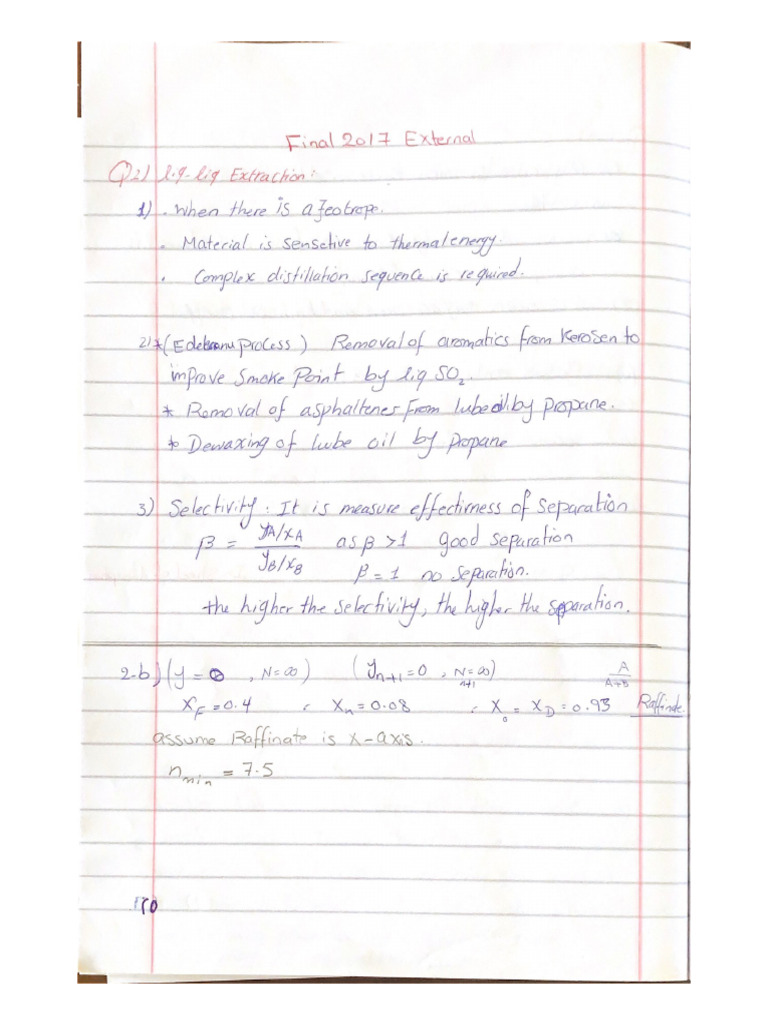 Final 2017 External
Q2) liq-liq Extraction:
1) . when there is azeotrope.
. Material is sensetive to thermal energy.
. Complex distillation sequence is required.
2) * (Edeleanu process) Removal of aromatics from Kerosen to
improve Smoke Point by liq SO₂.
* Removal of asphaltenes from lube oil by propane.
* Dewaxing of lube oil by propane
3) Selectivity: It is measure effectivness of separation
β = (yA/xA)/(yB/xB) as β >1 good separation
β = 1 no separation.
the higher the selectivity, the higher the separation.
2.b) (y = 0, N = ∞) (yn+1 = 0, Nn+1 = ∞) A/A+B
XF = 0.4 , Xn = 0.08 , Xo = XD = 0.93 Raffinate
assume Raffinate is X-axis.
nmin = 7.5